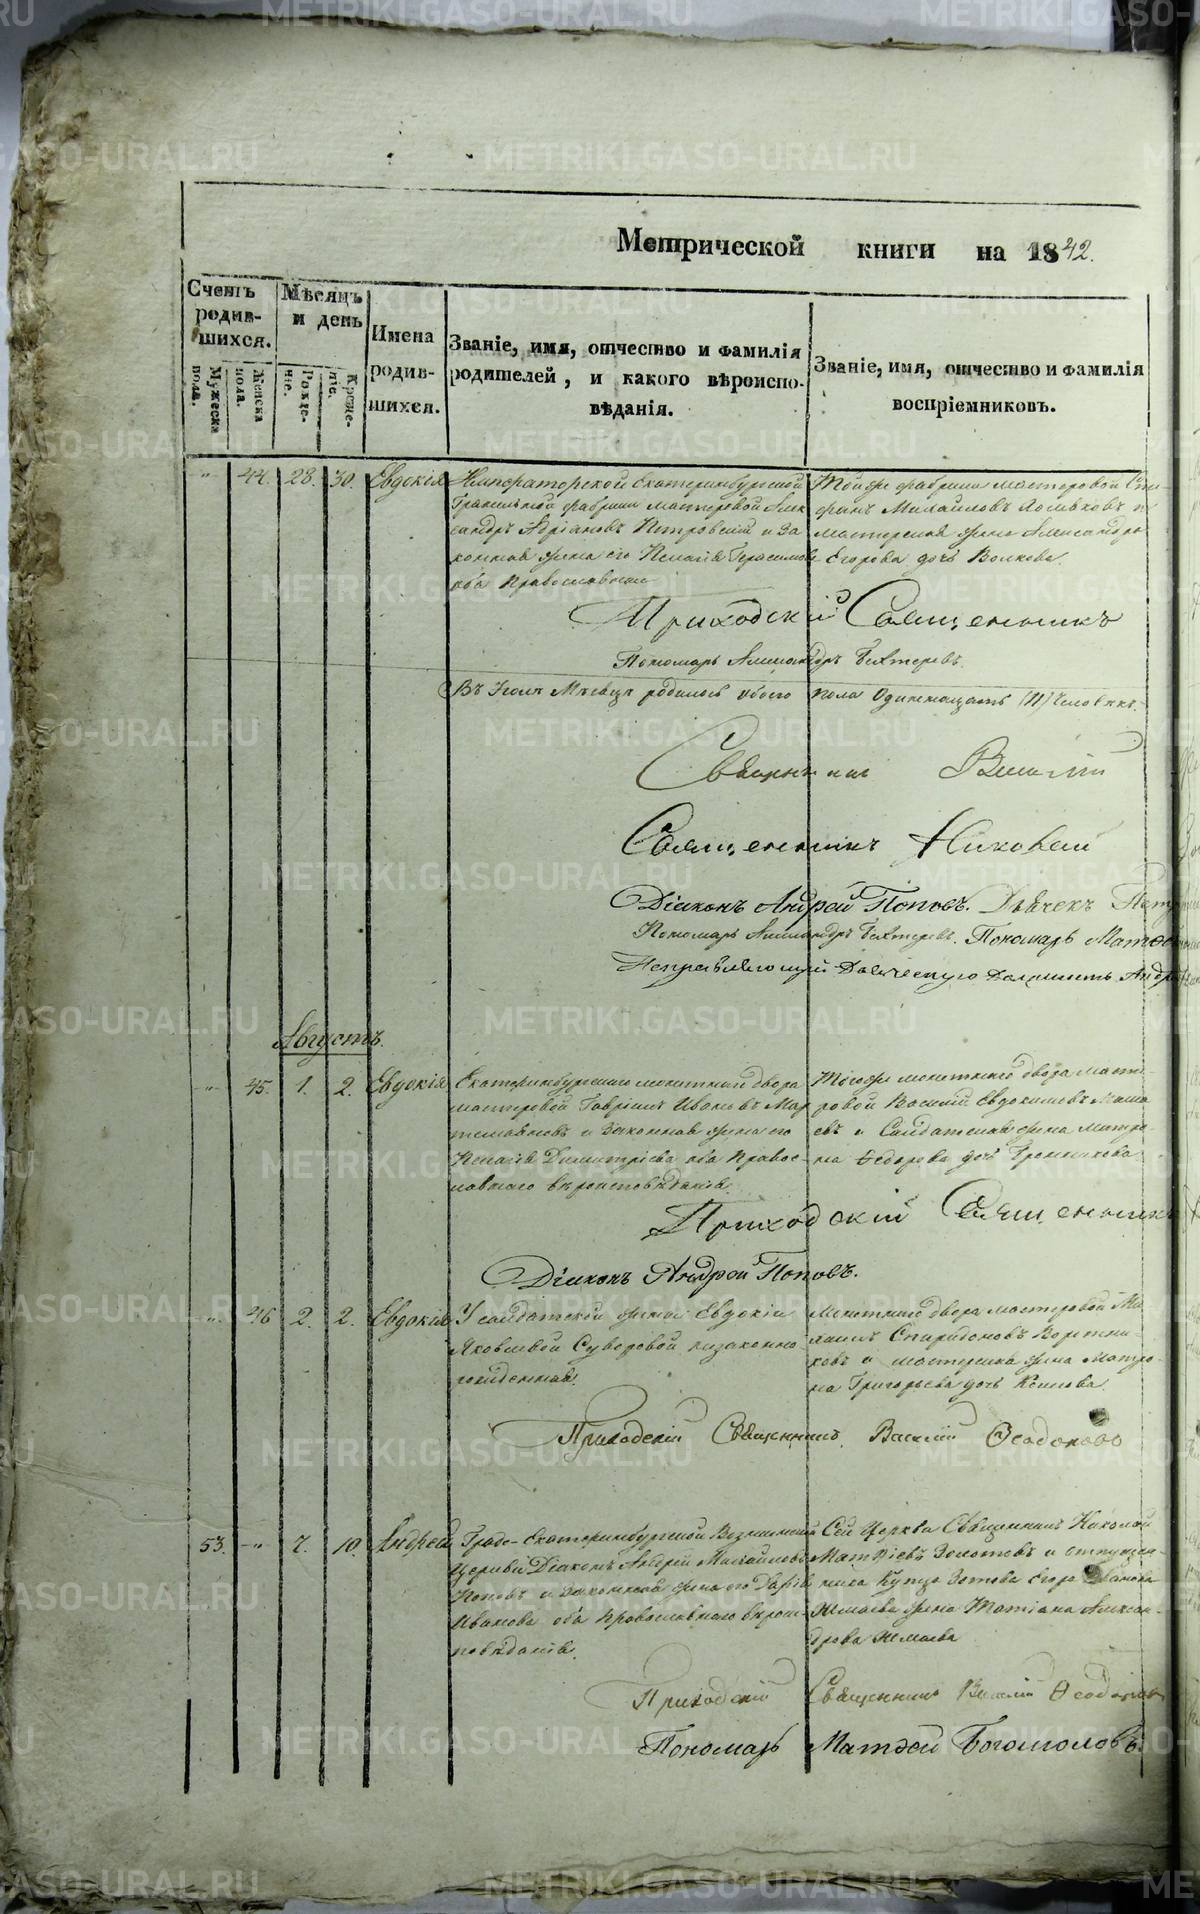 Метрической книги на 1842.
Счетъ родив-шихся.
Мужеска пола.
Женска пола.
Мѣсяцъ и день
Рожде-ніе.
Креще-ніе.
Имена родив-шихся.
Званіе, имя, отчество и фамилія
родителей, и какого вѣроиспо-
вѣданія.
Званіе, имя, отчество и фамилія
воспріемниковъ.
" 44. 28. 30. Евдокія
Императорской Екатеринбургской
Гранильной фабрики мастеровой Алек
сандръ Адріановъ Петровскій и за
конная жена его Пелагія Герасимова
оба Православные
Тойже фабрики мастеровой Сте-
фанъ Михайловъ и
мастерская жена Александра
Егорова дочь Волкова.
Приходскій Священникъ
Пономарь Александръ Бехтеревъ.
Въ Іюлѣ Мѣсяцѣ родилось обоего пола Одиннадцать (11) Человѣкъ.
Священникъ Василій
Священникъ Николай
Діаконъ Андрей Поповъ. Дьячекъ
Пономарь Александръ Бехтеревъ. Пономарь
Исправляющій Дьяческую Должность
Августъ.
" 45. 1. 2. Евдокія
Екатеринбургскаго монетнаго двора
мастеровой Гавріилъ Ивановъ Мар
и законная жена его
Пелагія Димитріева оба Правос-
лавнаго вѣроисповѣданія.
Тогоже монетнаго двора масте-
ровой Василій Евдокимовъ
евъ и Солдатская жена Матре-
на Ѳедорова дочь
Приходскій Священникъ
Діаконъ Андрей Поповъ.
" 46 2. 2. Евдокія
У солдатской жены Евдокіи
Яковлевой Суворовой незаконно-
рожденная.
Монетнаго двора мастеровой Ми
хаилъ Спиридоновъ Воротни-
ковъ и мастерская жена Матро-
на Григорьева дочь
Приходскій Священникъ Василій
53. " 7. 10. Андрей
Градо-Екатеринбургской Вознесенской
Церкви Діаконъ Андрей Михайловъ
Поповъ и законная жена его Дарія
Иванова оба Православнаго вѣрои-
повѣданія.
Сей Церкви Священникъ Николай
Матѳіевъ Золотовъ и отпущен-
ника Купца Зотова Егора Иванова
жена Татіана Алексан-
дрова
Приходскій Священникъ Василій
Пономарь Матѳей Богомоловъ.
METRIKI.GASO-URAL.RU